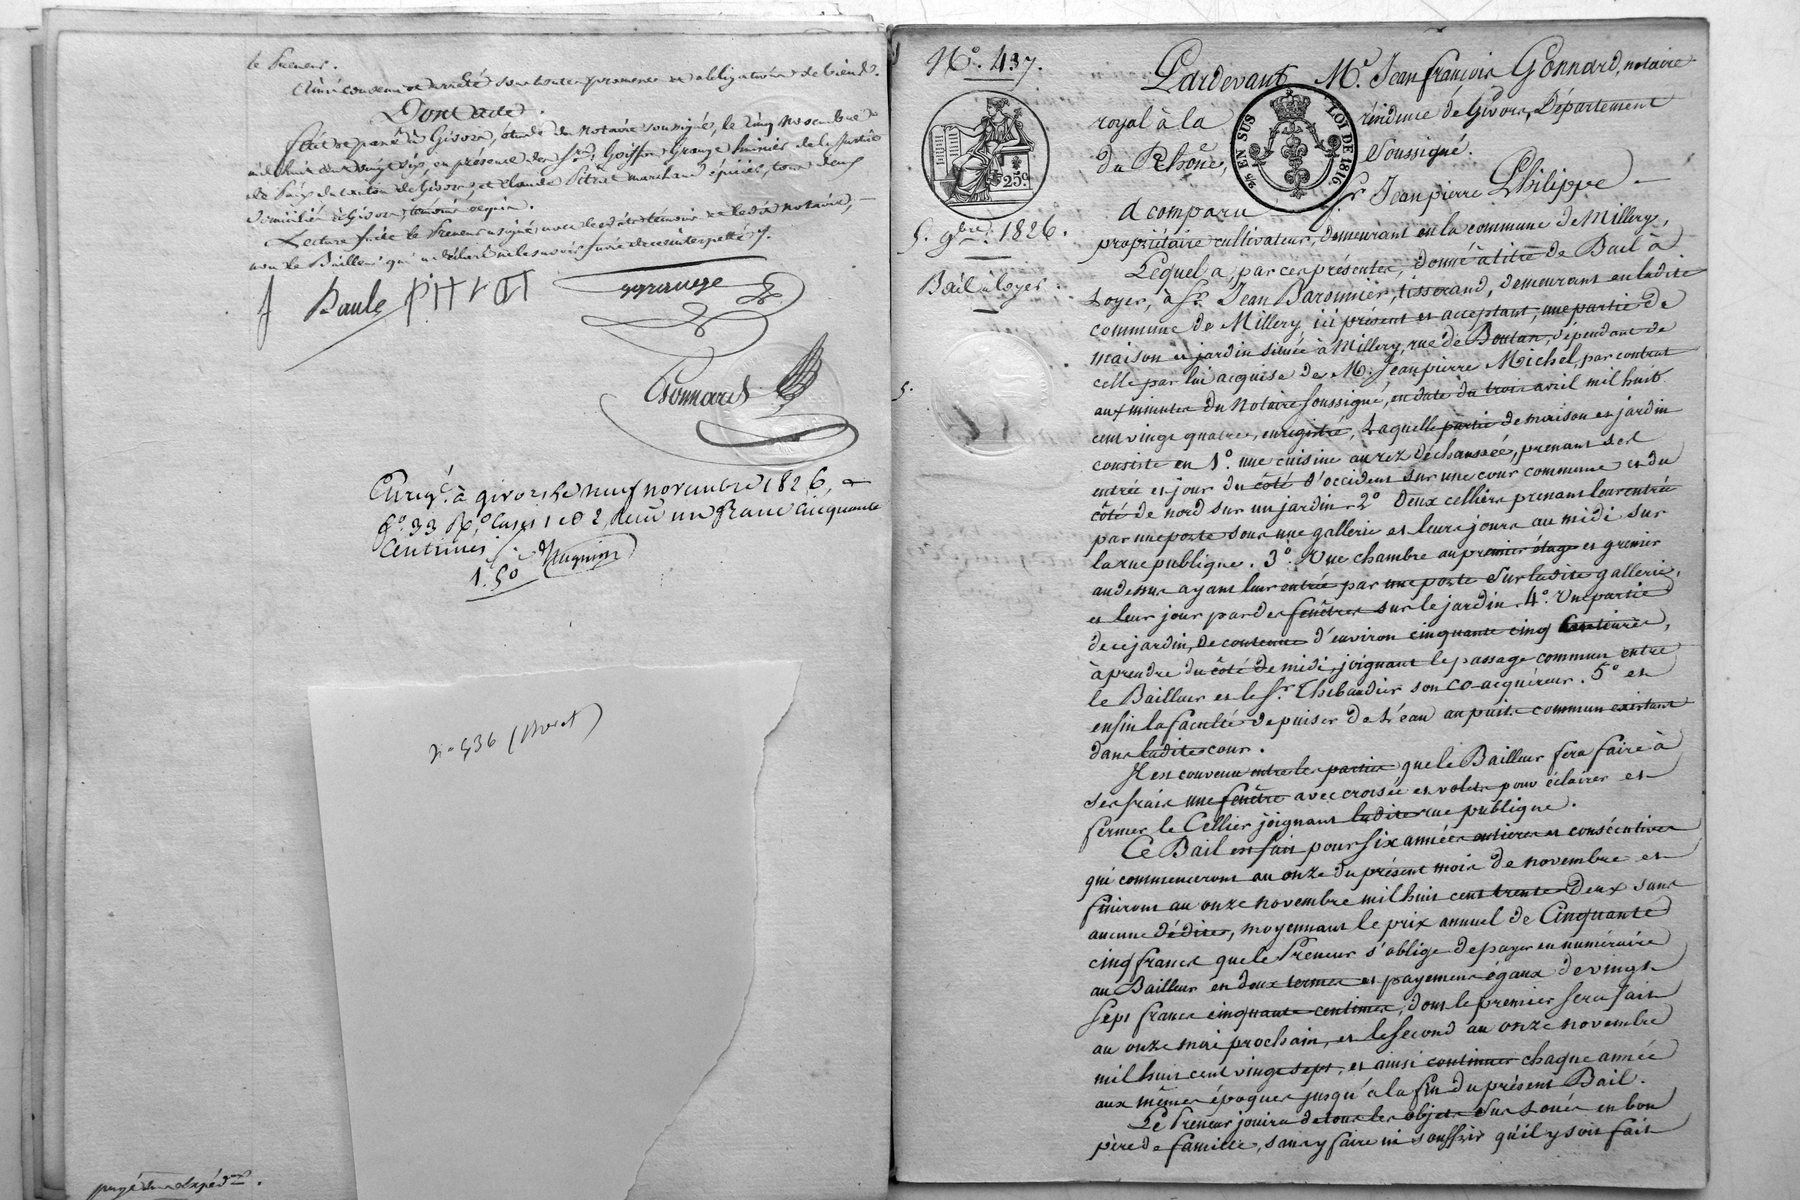 le Preneur.
Ainsi convenu et arrêté sous toutes promesses et obligations de biens.
Dont acte.
Fait et passé à Givors, étude du notaire soussigné, le cinq novembre
mil huit cent vingt six, en présence des Srs. Goiffon Grange huissier de la Justice
de Paix du canton de Givors, et Claude Pitrat marchand épicier, tous deux
domiciliés à Givors, témoins requis.
Lecture faite le Preneur a signé avec lesdits témoins et ledit notaire,
non le Bailleur qui a déclaré ne le savoir faire de ce interpellé.
Paule PITRAT ggrange
Gonnard
Enregé. à givors le neuf novembre 1826,
fo. 33 Ro. cases 1 et 2, reçu un franc cinquante
centimes
1. 50
no 436 (Buret)
No. 437.
5. 9bre. 1826.
Bail à loyer.
5.
25c.
25 EN SUS LOI DE 1816
Pardevant Me. Jean françois Gonnard, notaire
royal à la résidence de Givors, Département
du Rhône, Soussigné.
a comparu Sr. Jean pierre Philippe
propriétaire cultivateur, demeurant en la commune de Millery,
Lequel a, par ces présentes, donné à titre de Bail à
Loyer, à Sr. Jean Baronnier, tisserand, demeurant en ladite
commune de Millery, ici présent et acceptant, une partie de
maison et jardin située à Millery, rue de Boutan, dépendant de
celle par lui acquise de M. Jean pierre Michel, par contrat
aux minutes du Notaire soussigné, en date du trois avril mil huit
cent vingt quatre, enregistré, Laquelle partie de maison et jardin
consiste en 1o. une cuisine au rez de chaussée, prenant ses
entrée et jour du côté d'occident sur une cour commune et du
côté de nord sur un jardin. 2o Deux celliers prenant leur entrée
par une porte sous une gallerie et leurs jours au midi sur
la rue publique. 3o. Une chambre au premier étage et grenier
au dessus ayant leur entrée par une porte Sur ladite gallerie,
et leur jour par des fenêtres sur le jardin. 4o. Une partie
de ce jardin, de contenue d'environ cinquante cinq Centiares,
à prendre du côté de midi, joignant le passage commun entre
le Bailleur et le Sr. Thibaudier son co-acquéreur. 5o et
enfin la faculté de puiser de l'eau au puits commun existant
dans ladite cour.
Il est convenu entre les parties que le Bailleur fera faire à
ses frais une fenêtre avec croisée et volets pour éclairer et
fermer le Cellier joignant ladite rue publique.
Ce Bail est fait pour six années entières et consécutives
qui commenceront au onze du présent mois de novembre et
finiront au onze novembre mil huit cent trente Deux sans
aucune dédite, moyennant le prix annuel de Cinquante
cinq francs que le Preneur s'oblige de payer en numéraire
au Bailleur en deux termes et payemens égaux de vingt
sept francs cinquante centimes, dont le premier sera fait
au onze mai prochain, et le second au onze novembre
mil huit cent vingt sept, et ainsi continuer chaque année
aux mêmes époques jusqu'à la fin du présent Bail.
Le Preneur jouira de tous les objets Sus Loués en bon
père de famille, sans y faire ni souffrir qu'il y soit fait